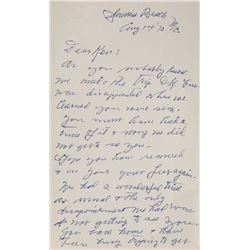 Hermosa Beach
Aug 14 '70
Dear Ken:
As you probably know
we made the trip O.K. Ever
was disappointed when we
learned you were sick.
You must have had a
time of it & sorry we did
not get to see you.
Hope you have rested
& on your
We had a wonderful time
as usual & the only
disappointment we had was
not getting to see you.
Been home & have
been busy trying to get